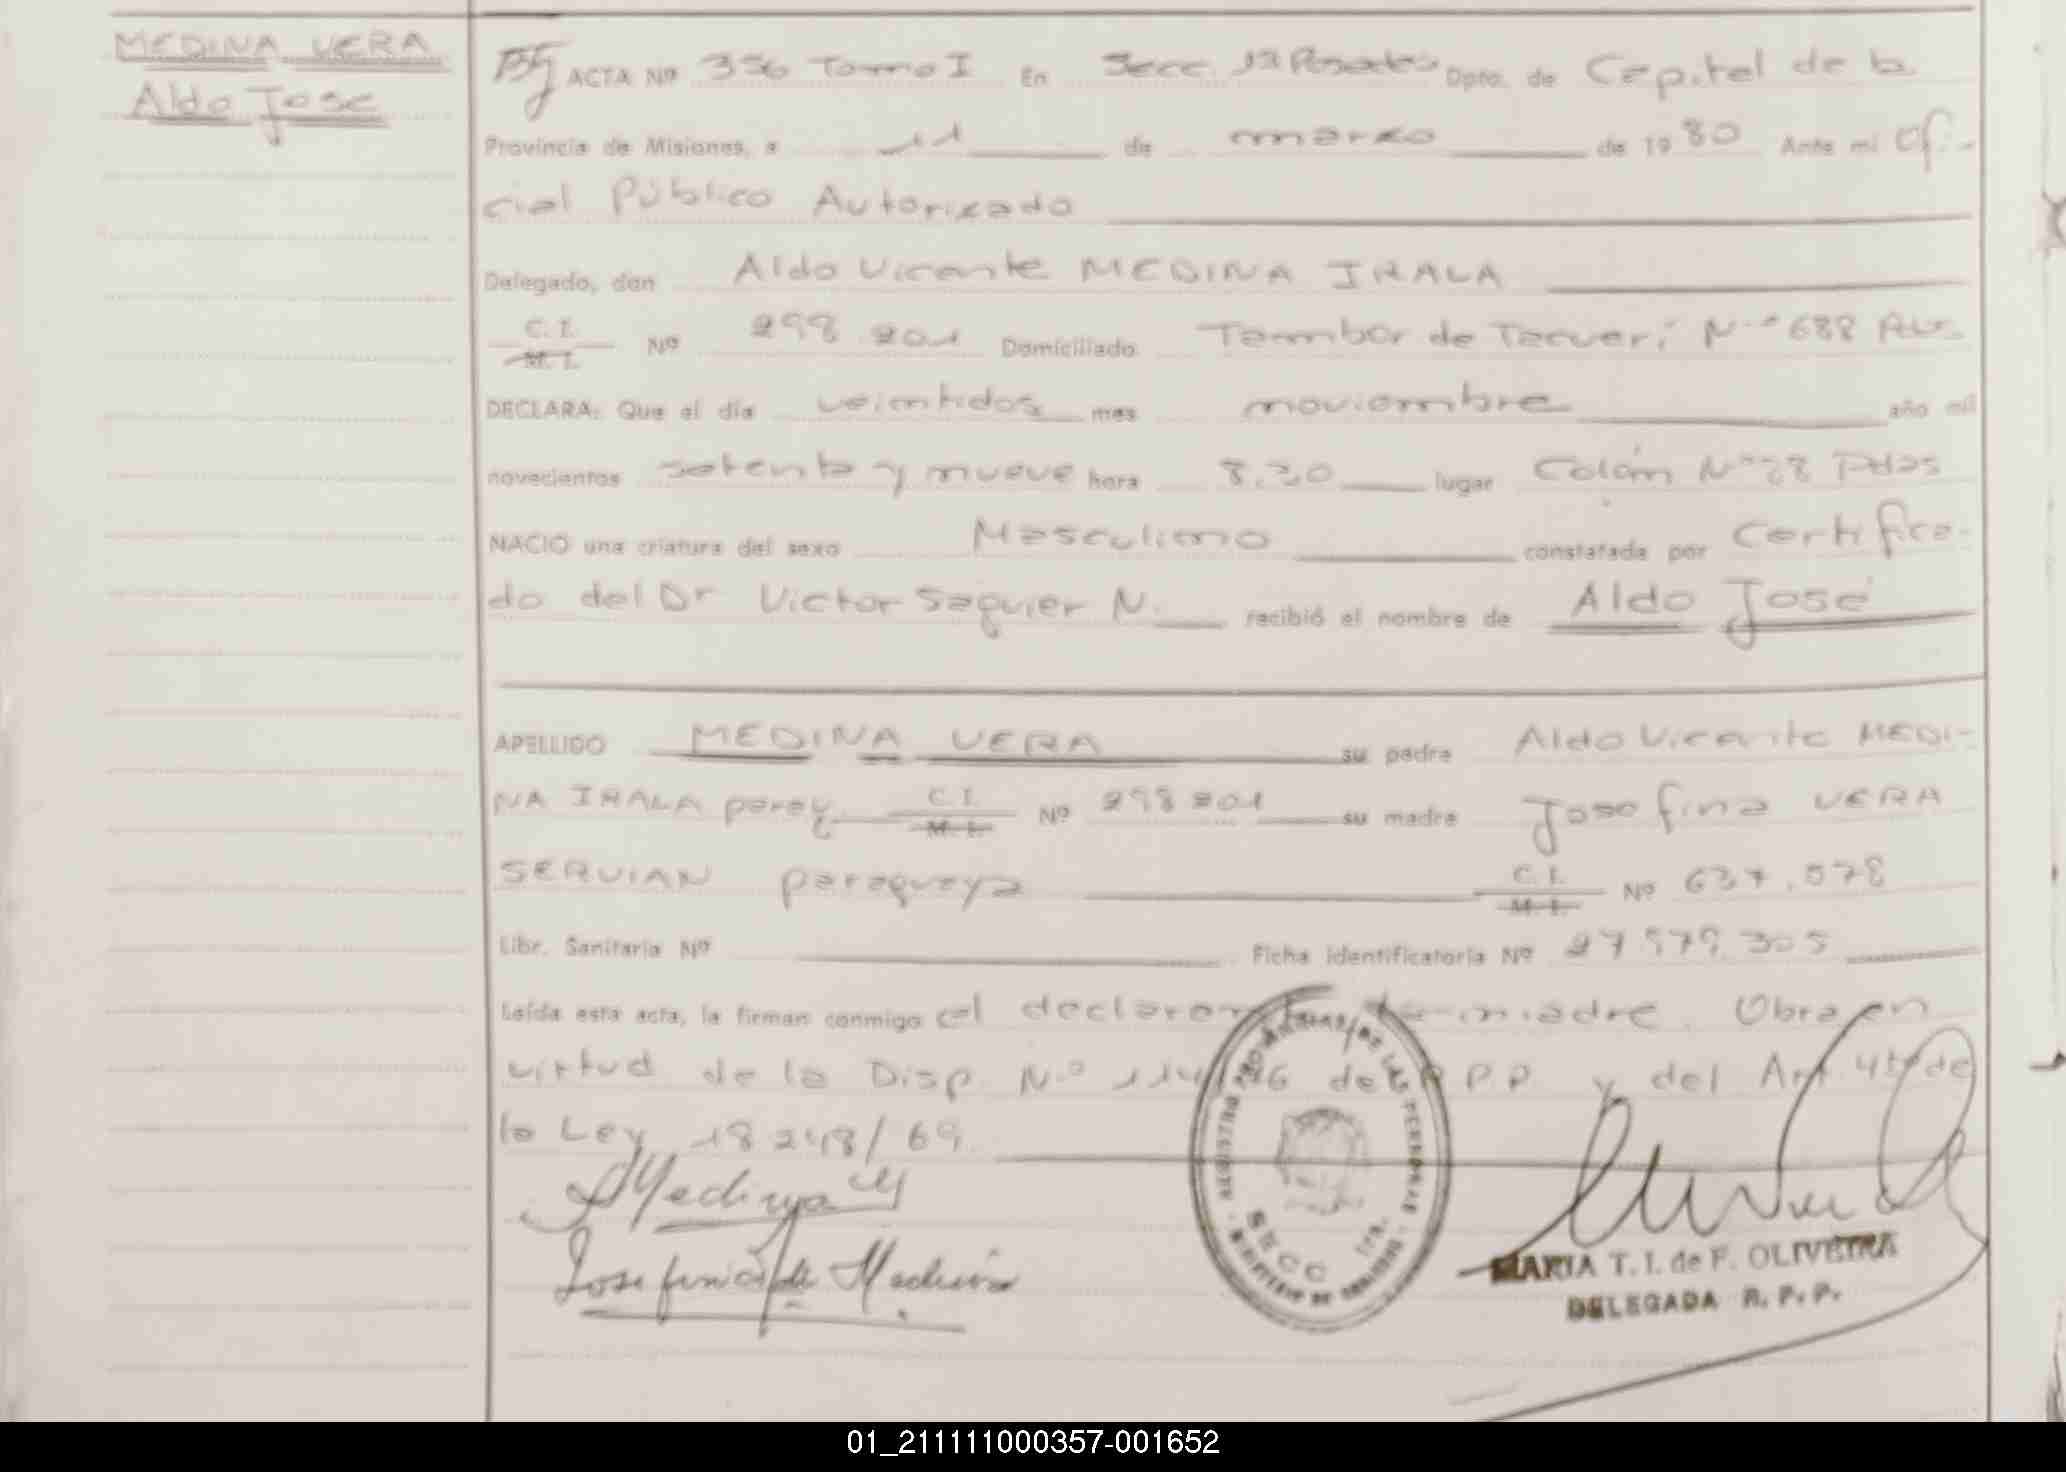 MEDINA VERA
Aldo José
ACTA Nº 356 Tomo I En Secc. 1ª Posadas Dpto. de Capital de la
Provincia de Misiones, a 11 de marzo de 1980 Ante mí Ofi-
cial Público Autorizado
Delegado, don Aldo Vicente MEDINA IRALA
C. I. M. I. Nº 298.201 Domiciliado Tambor de Tacuarí Nº 688
DECLARA: Que el día veintidos mes noviembre año mil
novecientos setenta y nueve hora 8.30 lugar Colón Nº 28 Pdas
NACIO una criatura del sexo Masculino constatada por Certifica-
do del Dr Victor Saguier N. recibió el nombre de Aldo José
APELLIDO MEDINA VERA su padre Aldo Vicente MEDI-
NA IRALA paray. C. I. M. I. Nº 298 201 su madre Josefina VERA
SERVIAN paraguaya C. I. M. I. Nº 637.578
Libr. Sanitaria Nº Ficha identificatoria Nº 27 579 305
Leída esta acta, la firman conmigo el declarante madre. Obra en
virtud de la Disp. Nº 114/76 de R P P y del Art. 4to de
la Ley 18248/69.
REGISTRO PROVINCIAL DE LAS PERSONAS
SECC 1ra.
MINISTERIO DE GOBIERNO
Medina
Josefina de Medina
MARIA T. I. de F. OLIVEIRA
DELEGADA R. P. P.
01_211111000357-001652